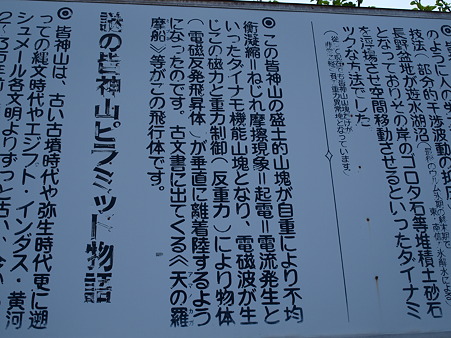 のように人の
技法(部分的干渉波動の
長野盆地が遊水湖沼
となっておりその岸のゴロタ石等堆積土砂石
を浮揚させ空間移動させるといったダイナミ
ックな方法でした
重力異常塊となっています
◎この皆神山の盛土的山塊が自重により不均
衡凝縮=ねじれ摩擦現象=起電=電流発生と
いったダイナモ機能山塊となり、電磁波が生
じこの磁力と重力制御(反重力)により物体
(電磁反発飛昇体)が垂直に離着陸するよう
になったのです。古文書に出てくる《天の羅
摩船》等がこの飛行体です。
謎の皆神山ピラミッド物語
皆神山は、古い古墳時代や弥生時代更に遡
っての縄文時代やエジプト・インダス・黄河
シュメール各文明よりずっと古い、